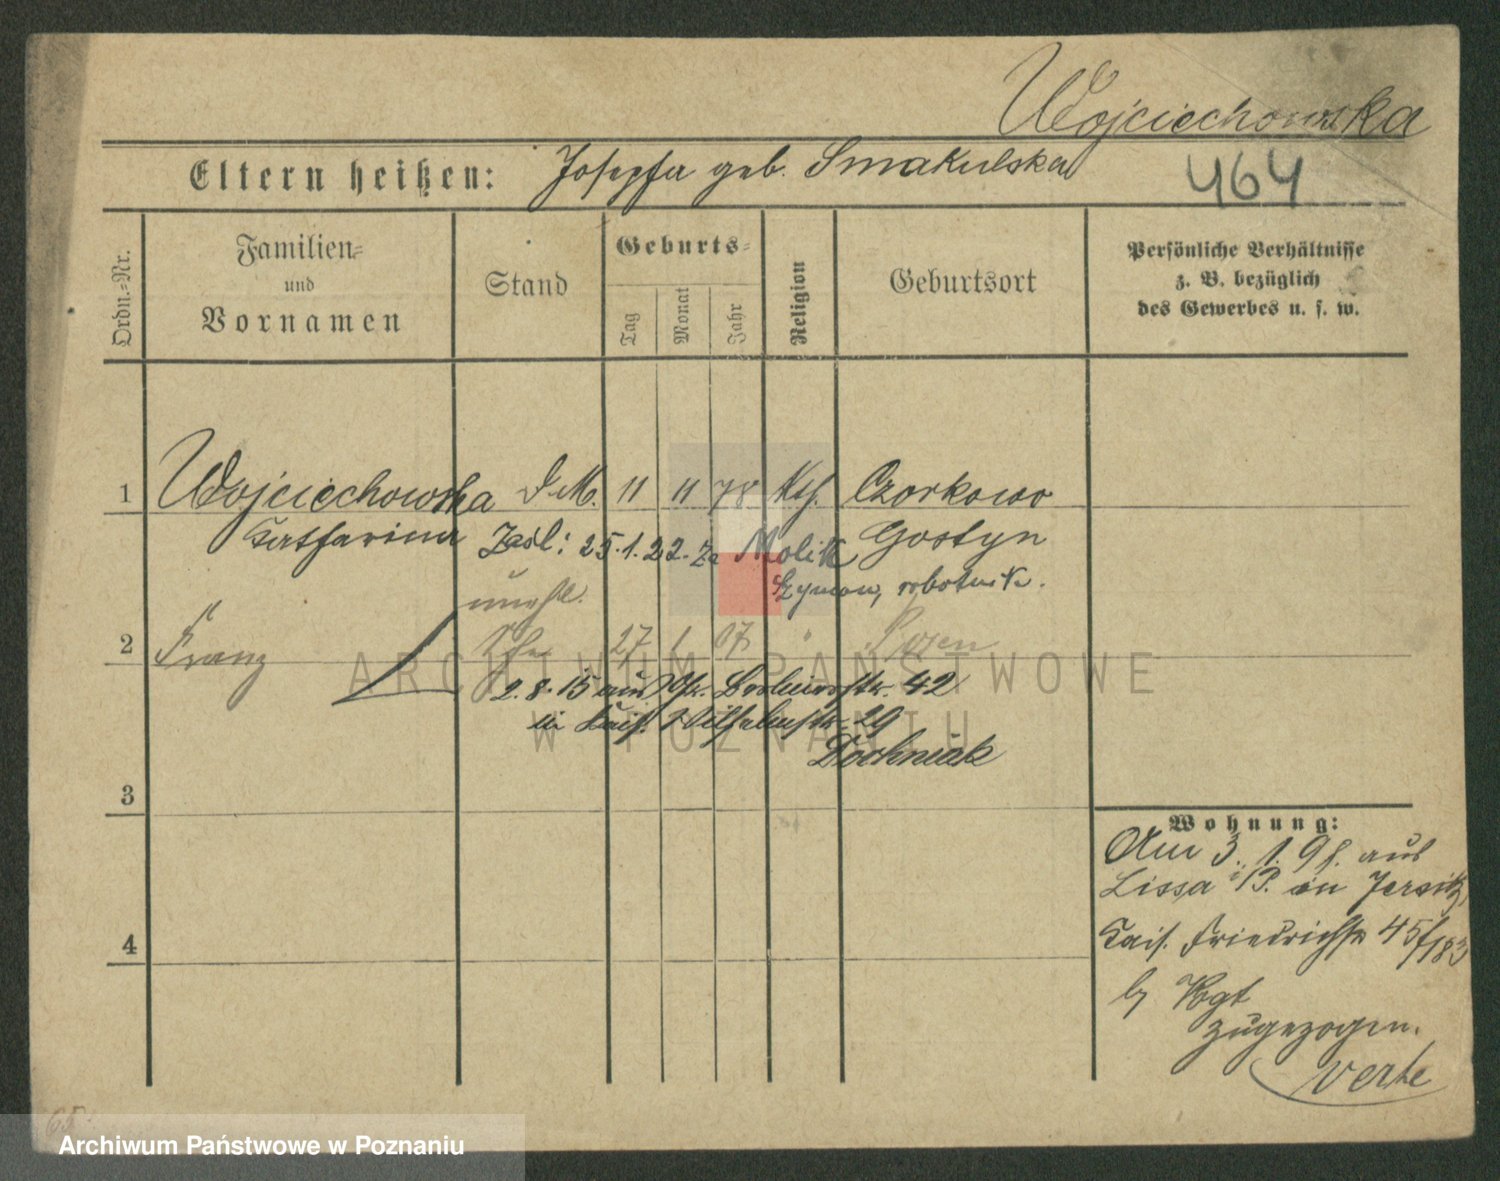 Wojciechowska
Eltern heißen: Josepha geb. Smakulska
464
Ordn.-Nr.
Familien-
und
Vornamen
Stand
Geburts-
Tag
Monat
Jahr
Religion
Geburtsort
Persönliche Verhältnisse
z. B. bezüglich
des Gewerbes u. s. w.
1 Wojciechowska D. M. 11 11 78 Kth. Czarkowo
Katharina Zaśl: 25.1.22. za Molik Gostyn
Szymon, robotnik.
unehl.
2 Franz 27 1 07 " Posen
2.8.15 aus Gr. 42
in Kais. Wilhelmstr. 29
Dochniak
3
Wohnung:
Am 3. 1. 98. aus
Lissa i/P. in Jersitz,
Kais. Friedrichstr 45/183
b/ Vogt
zugezogen.
verte
4
65.
ARCHIWUM PAŃSTWOWE
W POZNANIU
Archiwum Państwowe w Poznaniu